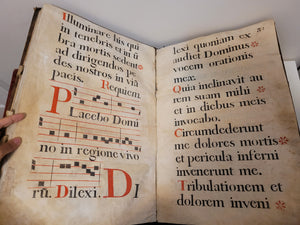 Illuminare his qui
in tenebris et in ū
bra mortis sedent
ad dirigendos pe
des nostros in viā
pacis. Requiem.
Placebo Domi
no in regione vivo
rū. Dilexi. Di
lexi quoniam ex
audiet Dominus
vocem orationis
meæ.
Quia inclinavit au
rem suam mihi
et in diebus meis
invocabo.
Circumdederunt
me dolores mortis
et pericula inferni
invenerunt me.
Tribulationem et
dolorem inveni